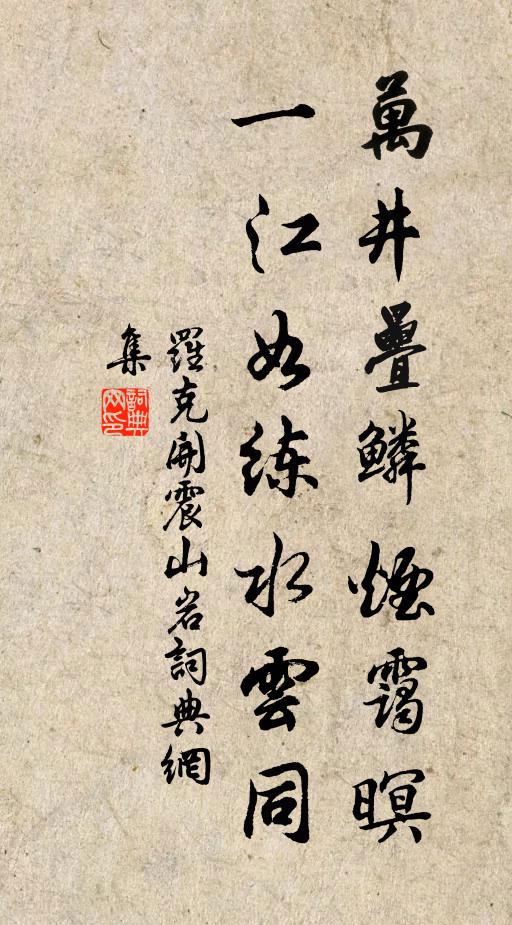 萬井疊鱗煙靄暝
一江如練水雲同
羅克開震山岩詞典網
集
詞典網印